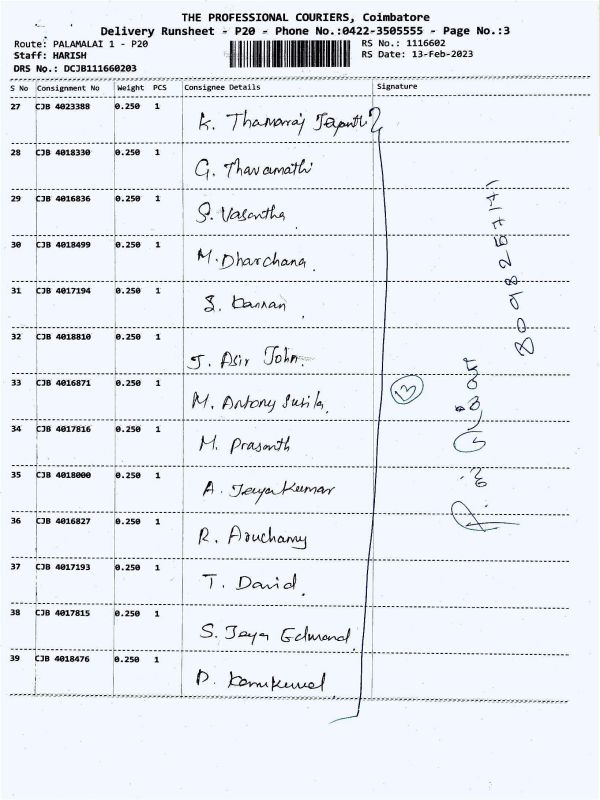 THE PROFESSIONAL COURIERS, Coimbatore
Delivery Runsheet - P20 - Phone No.:0422-3505555 - Page No.:3
Route: PALAMALAI 1 - P20
RS No.: 1116602
Staff: HARISH
RS Date: 13-Feb-2023
DRS No.: DCJB111660203
S No Consignment No Weight PCS Consignee Details Signature
27 CJB 4023388 0.250 1
K. Thamaraj
28 CJB 4018330 0.250 1
G. Thavamathi
29 CJB 4016836 0.250 1
S. Vasantha
30 CJB 4018499 0.250 1
M. Dharchana
31 CJB 4017194 0.250 1
S. Kannan
32 CJB 4018810 0.250 1
J. Asir John
33 CJB 4016871 0.250 1
M. Antony Susila
13
34 CJB 4017816 0.250 1
M. Prasanth
35 CJB 4018000 0.250 1
A. Jeyakumar
36 CJB 4016827 0.250 1
R. Aruchamy
37 CJB 4017193 0.250 1
T. David
38 CJB 4017815 0.250 1
S. Jeya Edmand
39 CJB 4018476 0.250 1